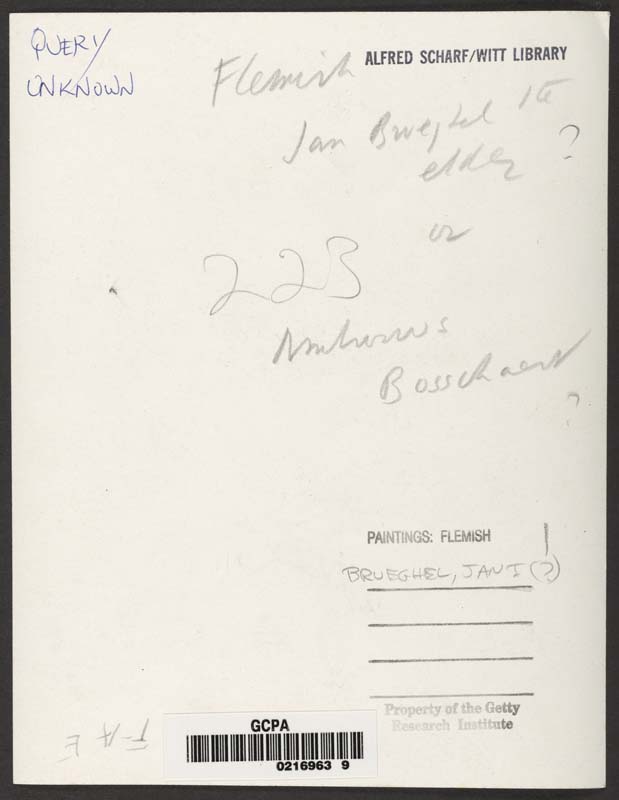 QUERY/
UNKNOWN
Flemish
ALFRED SCHARF/WITT LIBRARY
Jan Brueghel the
elder ?
or
223
Ambrosius
Bosschaert
?
PAINTINGS: FLEMISH
BRUEGHEL, JAN I (?)
Property of the Getty
Research Institute
GCPA
0216963 9